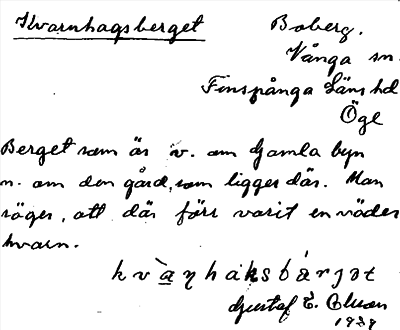 Kvarnhagsberget
Boberg.
Vånga sn.
Finspånga Läns hd
Ögl
Berget som är v. om Gamla byn
n. om den gård, som ligger där. Man
säger, att där förr varit en väder
kvarn.
kvàṇhaksbárjət
Gustaf E.
1939